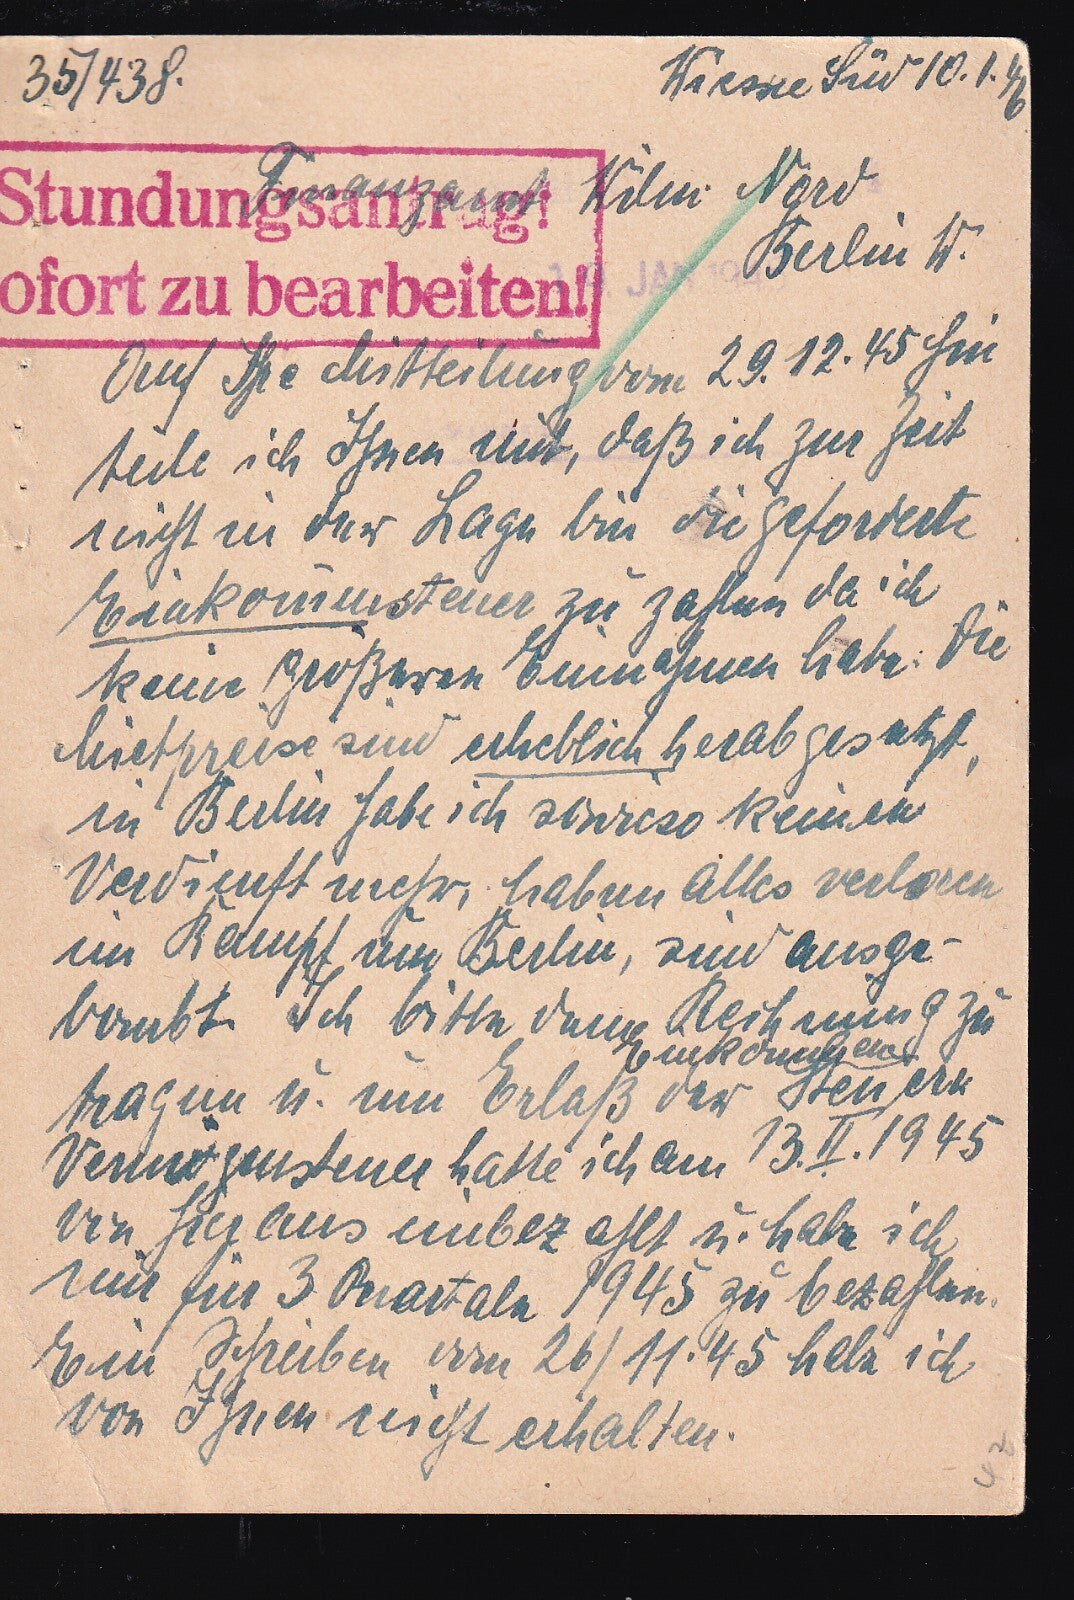 35/438.
Wiessee Süd 10.1.46
Stundungsantrag!
ofort zu bearbeiten!
Finanzamt Wilm. Nord
Berlin W.
Auf Ihre Mitteilung vom 29.12.45 hin
teile ich Ihnen mit, daß ich zur Zeit
nicht in der Lage bin die geforderte
Einkommensteuer zu zahlen da ich
keine größeren Einnahmen habe. Die
Mietpreise sind erheblich herabgesetzt,
in Berlin habe ich sowieso keinen
Verdienst mehr, haben alles verloren
im Kampf um Berlin, sind ausge-
bombt. Ich bitte dem Rechnung zu
Einkommen
tragen u. um Erlaß der Steuern
Vermögensteuer hatte ich am 13.II.1945
von hier aus einbezahlt u. habe ich
nur für 3 Quartale 1945 zu bezahlen.
Ein Schreiben vom 26/11.45 habe ich
von Ihnen nicht erhalten.